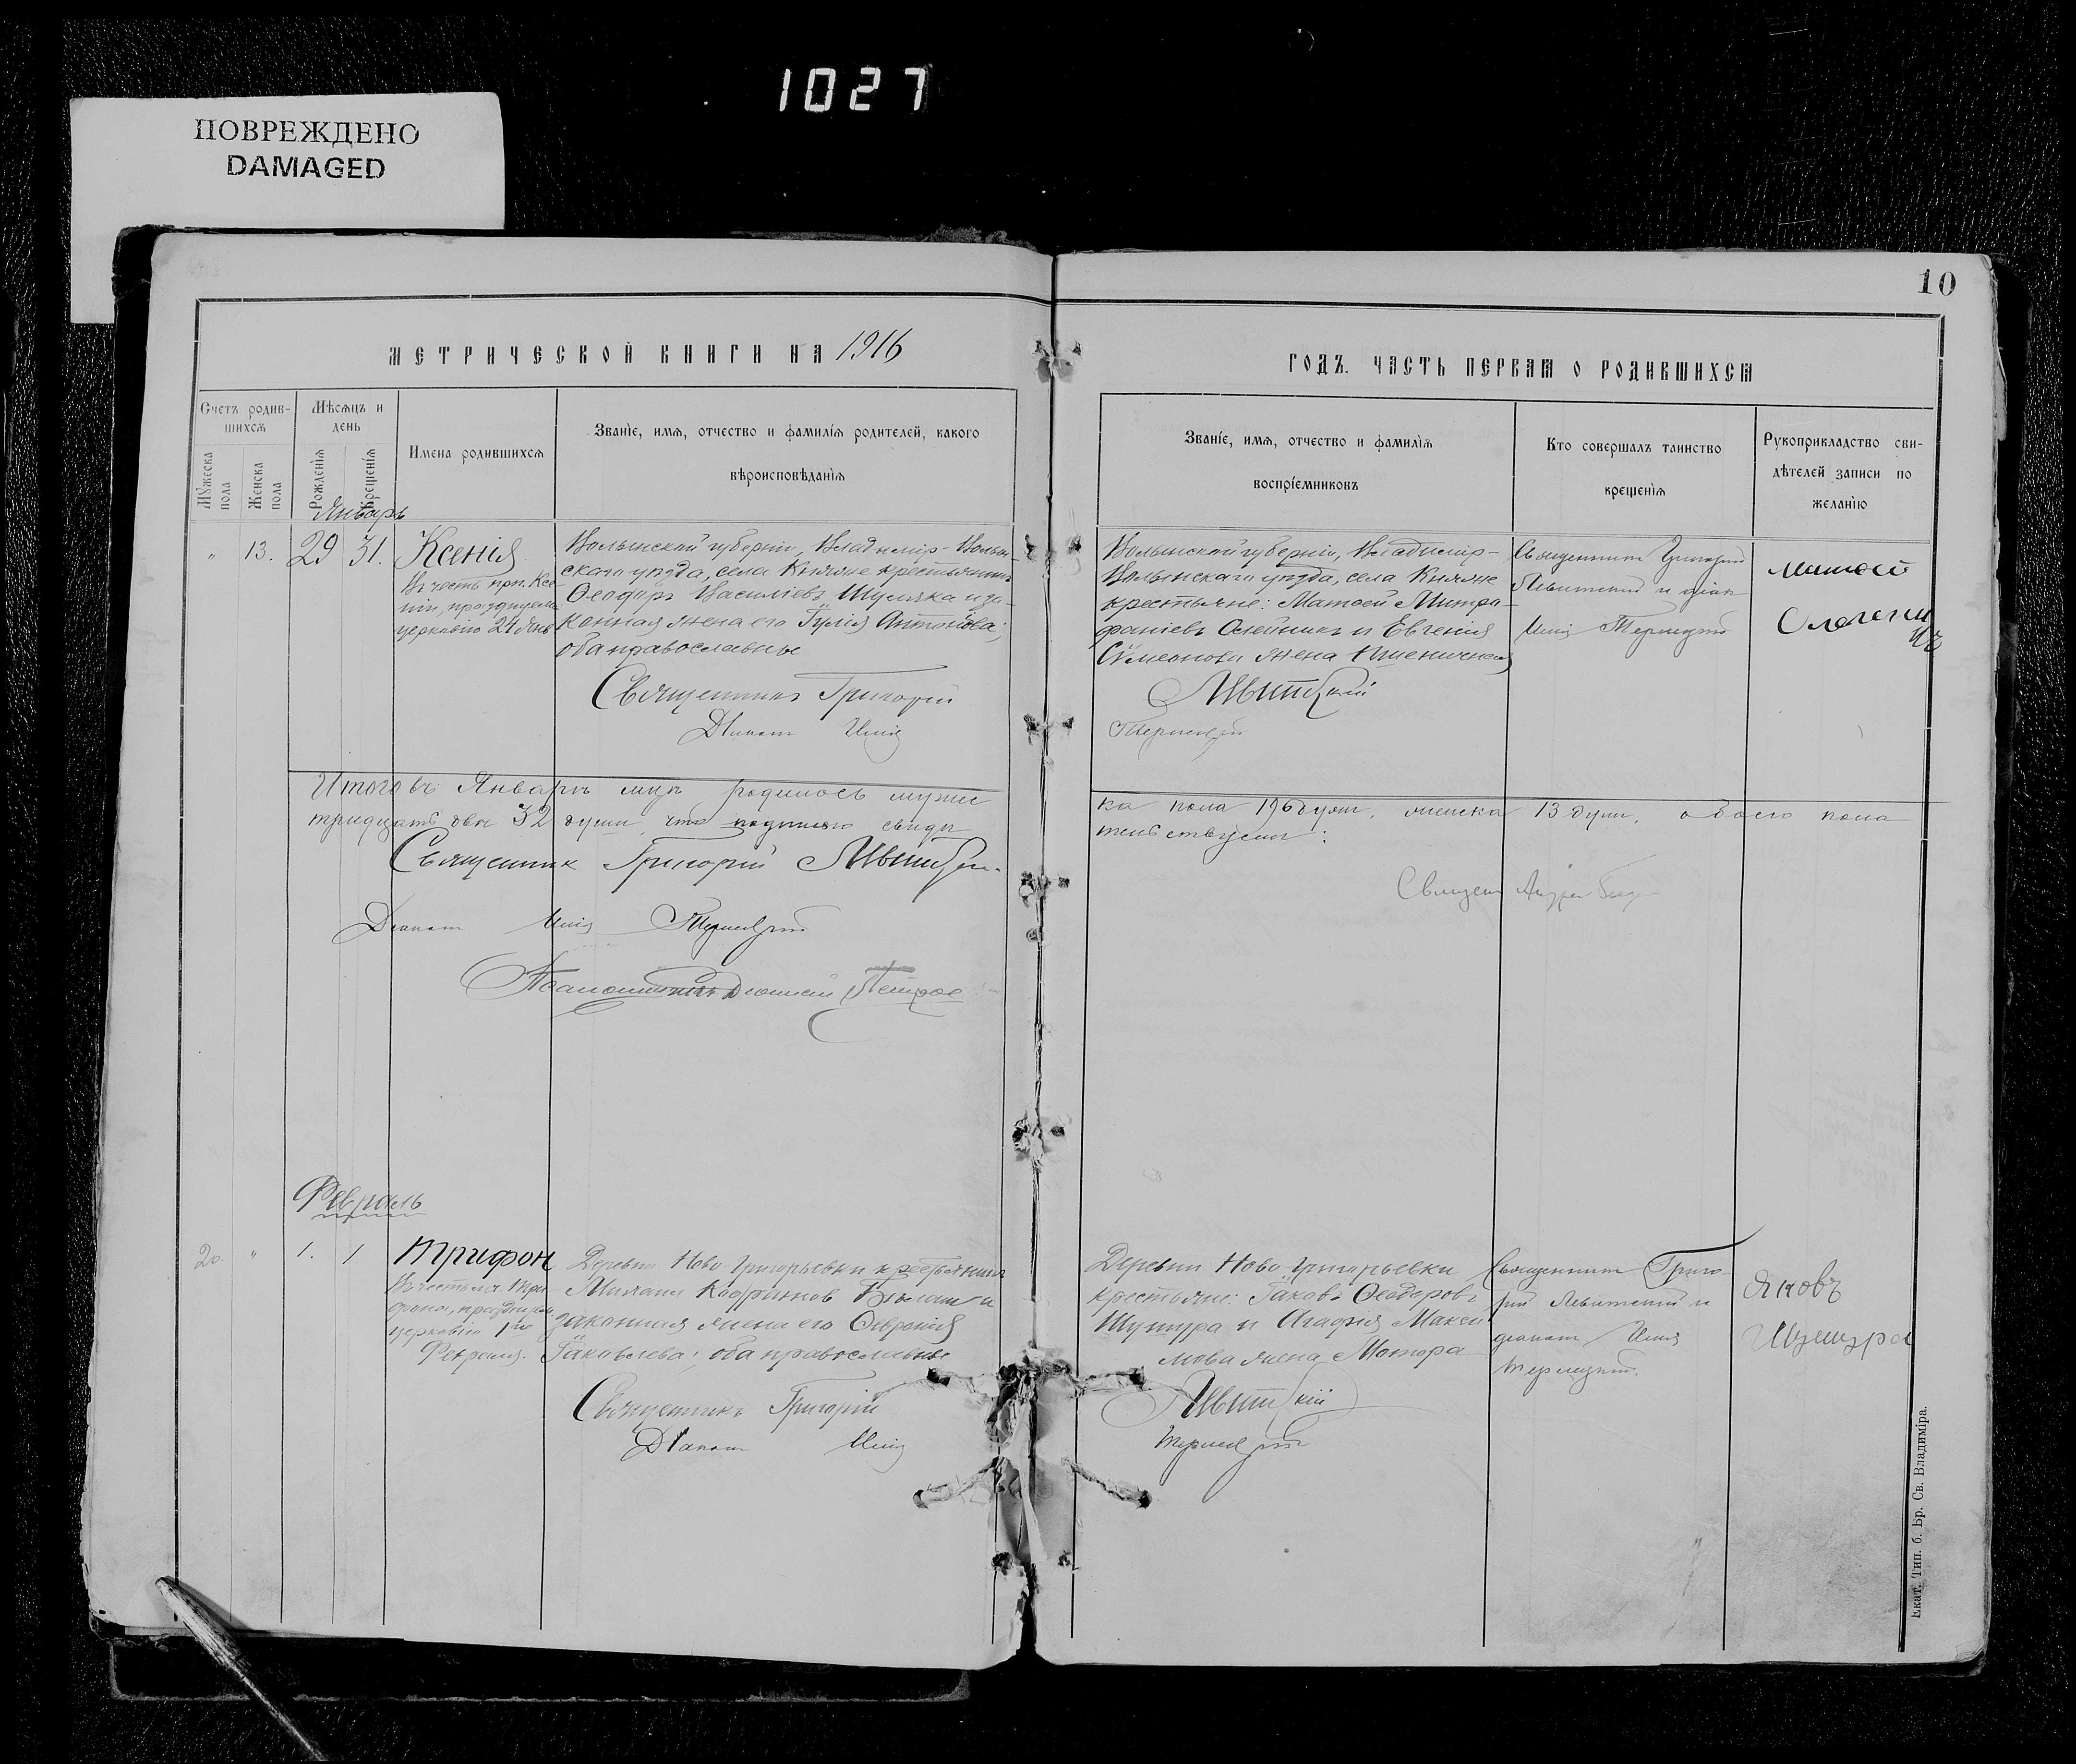 1027
ПОВРЕЖДЕНО
DAMAGED
10
МЕТРИЧЕСКОЙ КНИГИ НА 1916
ГОДЪ. ЧАСТЬ ПЕРВАЯ О РОДИВШИХСЯ
Счетъ родив-
шихся
Мужеска
пола
Женска
пола
Мѣсяцъ и
день
Рожденія
Крещенія
Имена родившихся
Званіе, имя, отчество и фамилія родителей, какого
вѣроисповѣданія
Званіе, имя, отчество и фамилія
воспріемниковъ
Кто совершалъ таинство
крещенія
Рукоприкладство сви-
дѣтелей записи по
желанію
Январь
" 13. 29 31. Ксенія
Въ честь прп. Ксе-
ніи, празднуем.
церковію 24 Янв
Волынской губерніи, Владимір-Волын-
скаго уѣзда, села Княже крестьянинъ
Ѳеодоръ Василіевъ Шуляка и за-
конная жена его Гулія Антонова;
оба православные
Священникъ Григорій
Діаконъ
Волынской губерніи, Владимір-
Волынскаго уѣзда, села Княже
крестьяне: Матѳей Митро-
фаніевъ Олейникъ и Евгенія
Сѵмеонова жена Пшенична
Левитскій
Терлецкій
Священникъ Григорій
Левитскій и діак
Терлецкій
Матѳей
Итого въ Январѣ мцѣ родилось муже
ка пола 19 душъ, женска 13 душъ, обоего пола
тридцать двѣ 32 души, что подписью свидѣ
тельствуемъ:
Священник Григорій Левитскій
Священ
Діаконъ Терлецкій
Псаломщикъ Діонисій Петров
Февраль
20 " 1. 1 Трифон
Въ честь мч. Три
фона, празднуем
церковію 1го
Февраля.
Деревни Ново Григорьевки крестьянинъ
законная жена его Февронія
Іаковлева; оба православные
Священникъ Григорій
Діаконъ
Деревни Ново Григорьевки
крестьяне: Іаковъ Ѳеодоровъ
Шутура и Агафія Макси
мова жена Мотора
Левитскій
Терлецкій
Священникъ Григо-
рій Левитскій и
діаконъ
Терлецкій.
Яковъ
Шутура
Екат. Тип. б. Бр. Св. Владиміра.